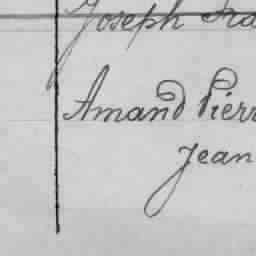 Joseph Fra
Amand Pierr
Jean